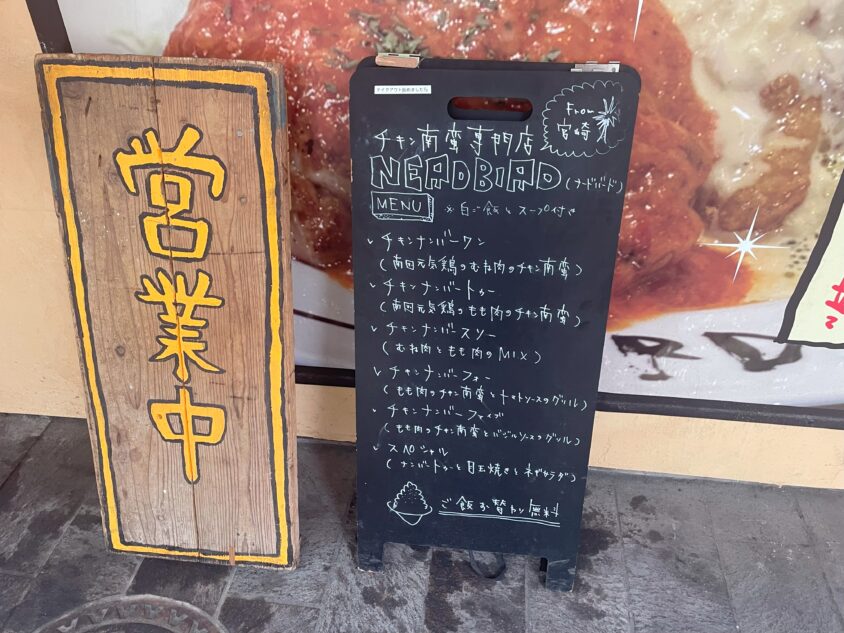 営業中
テイクアウト始めました
From
宮崎
チキン南蛮専門店
NERDBIRD(ナードバード)
MENU ※白ご飯とスープ付き
✓ チキンナンバーワン
(南国元気鶏のむね肉のチキン南蛮)
✓ チキンナンバートゥー
(南国元気鶏のもも肉のチキン南蛮)
✓ チキンナンバースリー
(むね肉ともも肉のMIX)
✓ チキンナンバーフォー
(もも肉のチキン南蛮とトマトソースのグリル)
✓ チキンナンバーファイブ
(もも肉のチキン南蛮とバジルソースのグリル)
✓ スペシャル
(ナンバートゥーと目玉焼きとネギサラダ)
ご飯お替わり無料